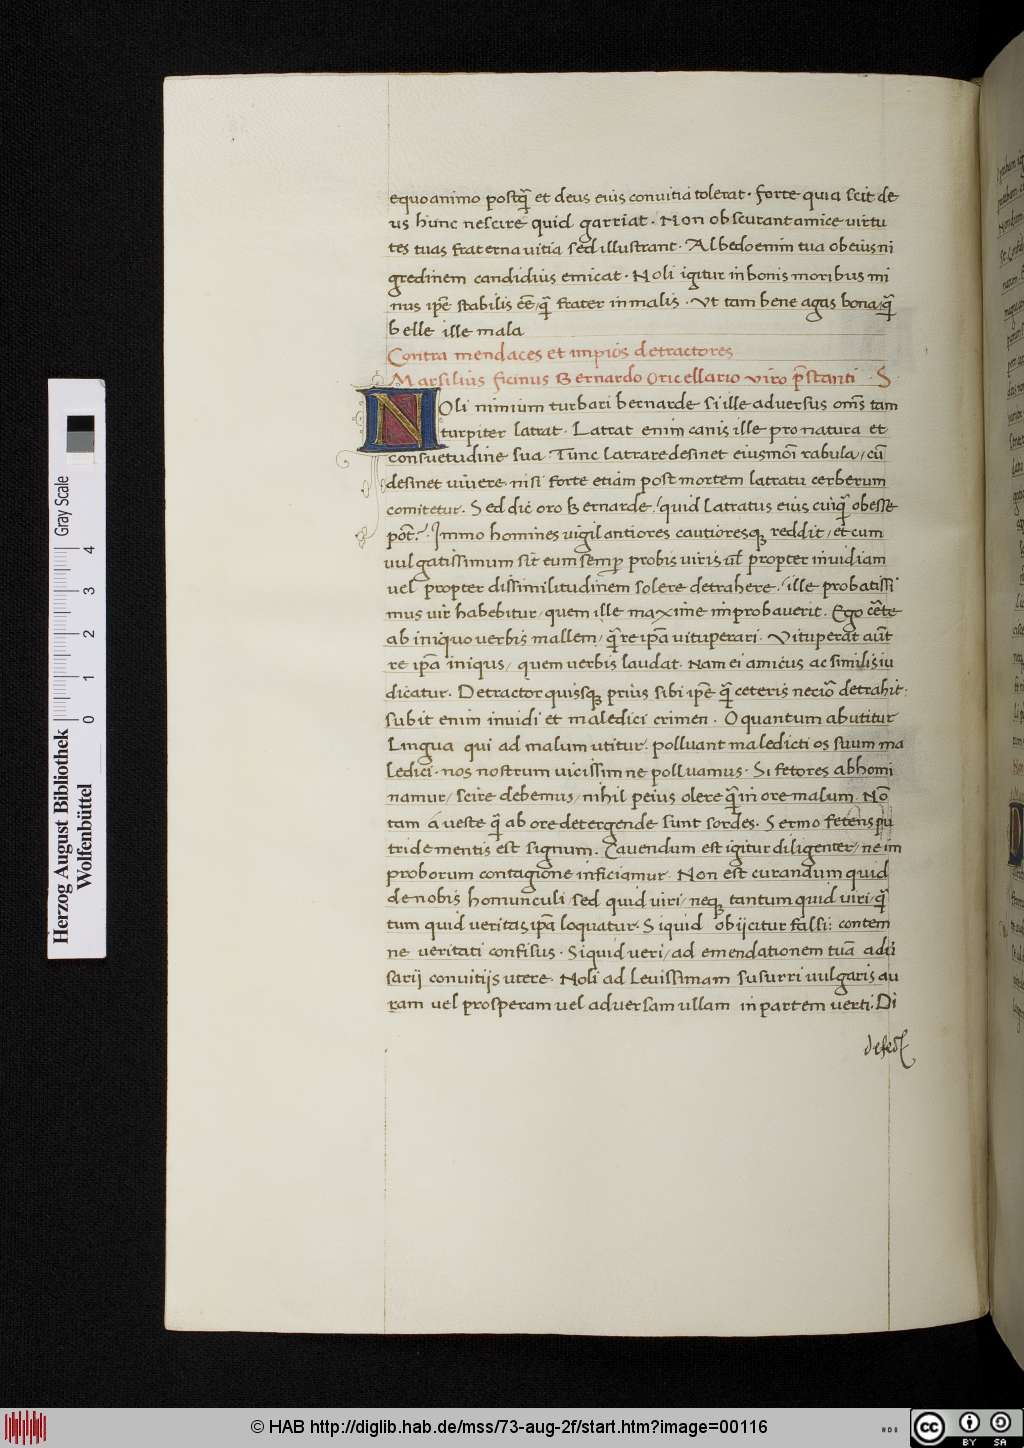 equo animo postq̃ et deus eius convitia tolerat · forte quia scit de
us hunc nescire quid garriat · Non obscurant amice virtu
tes tuas fraterna vitia sed illustrant · Albedo enim tua ob eius ni
gredinem candidius emicat · Noli igitur in bonis moribus mi
nus ip̃e stabilis eẽ/ q̃ frater in malis · Ut tam bene agas bona/ q̃
belle ille mala
Contra mendaces et impios detractores
Marsilius ficinus Bernardo Oricellario viro p̃stanti · S
Noli nimium turbari bernarde si ille adversus om̃s tam
turpiter latrat · Latrat enim canis ille pro natura et
consuetudine sua · Tunc latrare desinet eiusmõi rabula/ cũ
desinet vivere · nisi forte etiam post mortem latratu cerberum
comitetur · Sed dic oro Bernarde/ quid latratus eius cuiq̃ obesse
põt? · Immo homines vigilantiores cautioresq; reddit/ et cum
vulgatissimum sit eum semp̲ probis viris ul̃ propter invidiam
vel propter dissimilitudinem solere detrahere/ ille probatissi
mus vir habebitur/ quem ille maxime improbaverit · Ego c̃te
ab iniquo verbis mallem/ q̃ re ip̃a vituperari · Vituperat aũt
re ip̃a iniqus/ quem verbis laudat · Nam ei amicus ac similis iu
dicatur · Detractor quisq; prius sibi ip̃e q̃ ceteris neciõ detrahit:
subit enim invidi et maledici crimen · O quantum abutitur
Lingua qui ad malum utitur · polluant maledicti os suum ma
ledici · nos nostrum vicissim ne polluamus · Si fetores abhomi
namur/ scire debemus/ nihil peius olere q̃ in ore malum · Nõ
tam á veste q̃ ab ore detergende sunt sordes · Sermo fetens pu
tride mentis est signum · Cavendum est igitur diligenter/ ne im
proborum contagione inficiamur · Non est curandum quid
de nobis homunculi sed quid viri/ neq; tantum quid viri/ q̃
tum quid veritas ip̃a loquatur · Siquid obijcitur falsi: contem
ne veritati confisus · Siquid veri/ ad emendationem tuã adũ
sarij convitijs utere · Noli ad levissimam susurri vulgaris au
ram vel prosperam vel adversam ullam in partem verti · Di
Herzog August Bibliothek
Wolfenbüttel
0 1 2 3 4
Gray Scale
© HAB http://diglib.hab.de/mss/73-aug-2f/start.htm?image=00116
HAB
cc BY SA